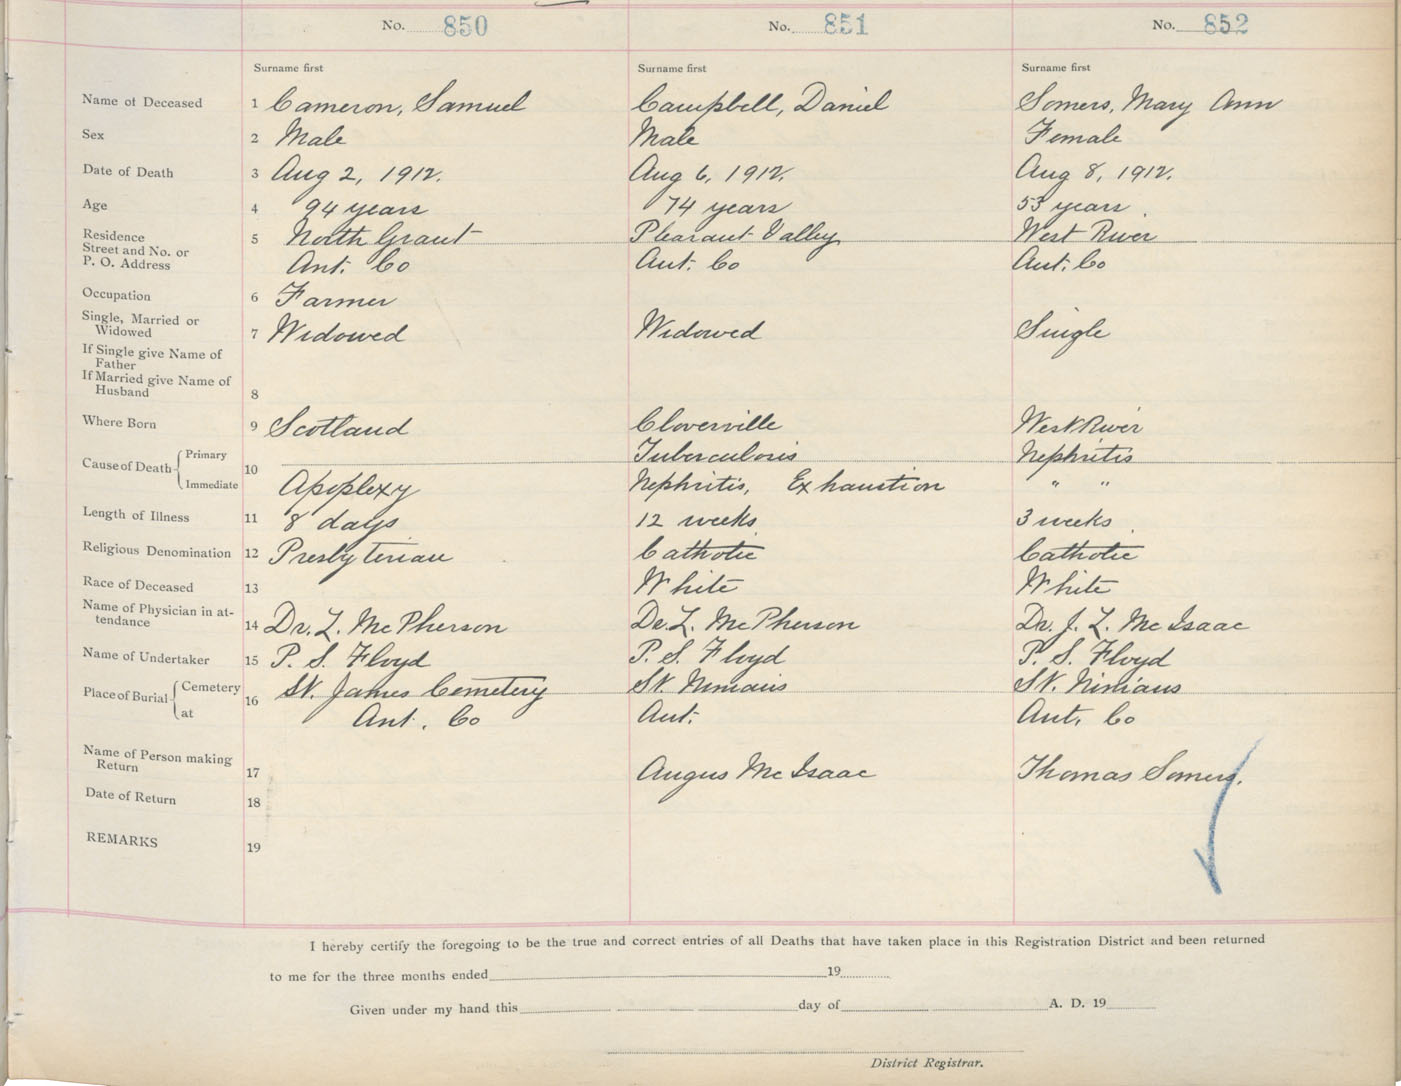 No. 850 No. 851 No. 852
Surname first Surname first Surname first
Name of Deceased 1 Cameron, Samuel Campbell, Daniel Somers, Mary Ann
Sex 2 Male Male Female
Date of Death 3 Aug 2, 1912. Aug 6, 1912. Aug 8, 1912.
Age 4 94 years 74 years 53 years
Residence
Street and No. or 5 North Grant Pleasant Valley West River
P. O. Address Ant. Co Ant. Co Ant. Co
Occupation 6 Farmer
Single, Married or
Widowed 7 Widowed Widowed Single
If Single give Name of
Father
If Married give Name of
Husband 8
Where Born 9 Scotland Cloverville West River
Primary Tuberculosis Nephritis
Cause of Death 10
Immediate Apoplexy Nephritis, Exhaustion " "
Length of Illness 11 8 days 12 weeks 3 weeks
Religious Denomination 12 Presbyterian Catholic Catholic
Race of Deceased 13 White White
Name of Physician in at-
tendance 14 Dr. L. McPherson Dr. L. McPherson Dr. J. L. McIsaac
Name of Undertaker 15 P. S. Floyd P. S. Floyd P. S. Floyd
Cemetery St. James Cemetery St. Ninians St. Ninians
Place of Burial 16
at Ant. Co Ant. Ant. Co
Name of Person making
Return 17 Angus McIsaac Thomas Somers.
Date of Return 18
REMARKS 19
I hereby certify the foregoing to be the true and correct entries of all Deaths that have taken place in this Registration District and been returned
to me for the three months ended 19
Given under my hand this day of A. D. 19
District Registrar.